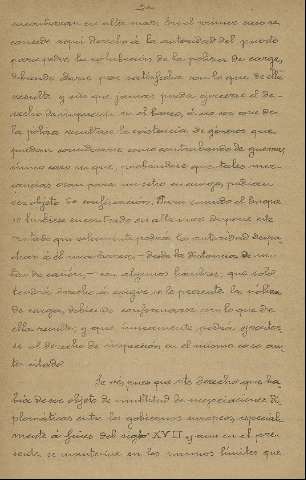 encontraran en alta mar. En el primer caso se
concede aquí derecho á la autoridad del puerto
para pedir la exhibición de la póliza de carga,
debiendo darse por satisfecha con lo que de ella
resulta y sin que jamás pueda ejercerse el de-
recho de inspección en el barco, á no ser que de
la póliza resultase la existencia de géneros que
puedan considerarse como contrabando de guerra,
único caso en que, probándose que tales mer-
cancías eran para un retro enemigo, pudieran
ser objeto de confiscación. Pero cuando el buque
se hubiese encontrado en alta mar dispone este
tratado que solamente podrá la autoridad despa-
char á él una barca, — desde la distancia de un
tiro de cañón, — con algunos hombres, que solo
tendrá derecho á exigir se le presente la póliza
de carga, debiendo conformarse con lo que de
ella resulte y que únicamente podrá ejercer-
se el derecho de inspección en el mismo caso an-
tes citado.
Se ve, pues que este derecho que ha-
bía de ser objeto de multitud de negociaciones di-
plomáticas entre los gobiernos europeos, especial-
mente á fines del siglo XVII y aun en el pre-
sente, se mantenía en los mismos límites que